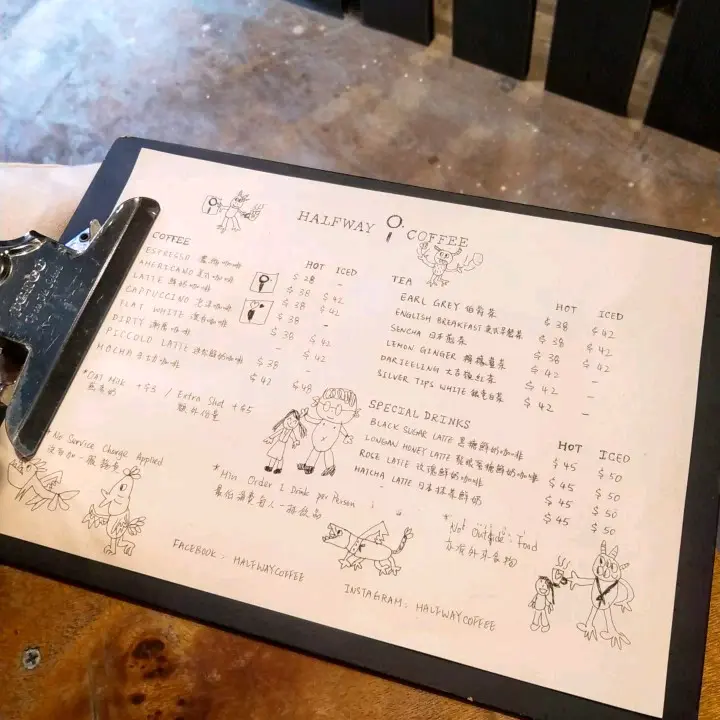 HALFWAY COFFEE
COFFEE
HOT ICED
ESPRESSO 濃縮咖啡 $28 -
AMERICANO 美式咖啡 $38 $42
LATTE 鮮奶咖啡 $38 $42
CAPPUCCINO 泡沫咖啡 $38 $42
FLAT WHITE 澳白咖啡
DIRTY 咖啡
PICCOLO LATTE 咖啡 $38
MOCHA 咖啡 $42 $48
*Oat Milk +$3 / Extra Shot +$5
燕麥奶 額外份量
*No Service Charge Applied
沒有加一服務費
TEA
HOT ICED
EARL GREY 伯爵茶 $38 $42
ENGLISH BREAKFAST 英式早餐茶 $38 $42
SENCHA 日本煎茶 $38 $42
LEMON GINGER 檸檬薑茶 $42 -
DARJEELING 大吉嶺紅茶 $42 -
SILVER TIPS WHITE 銀毫白茶 $42 -
SPECIAL DRINKS
HOT ICED
BLACK SUGAR LATTE 黑糖鮮奶咖啡 $45 $50
LONGAN HONEY LATTE 龍眼蜜糖鮮奶咖啡 $45 $50
ROSE LATTE 玫瑰鮮奶咖啡 $45 $50
MATCHA LATTE 日本抹茶鮮奶 $45 $50
*Min Order 1 Drink per Person
最低消費每人一杯飲品
*Not Outside Food
外來食物
FACEBOOK: HALFWAYCOFFEE
INSTAGRAM: HALFWAYCOFFEE